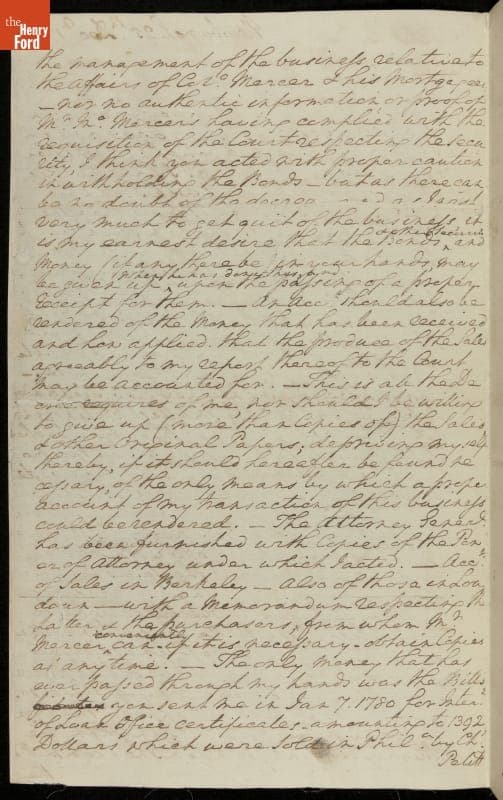 the
Henry
Ford
the management of the business relative to
the affairs of Colo. Mercer & his Mortgagees
– nor no authentic information or proof of
Mr. Jno. Mercer's having complied with the
requisition of the Court respecting the secu
rity, I think you acted with proper caution
in withholding the Bonds – but as there can
be no doubt of the decree and as I wish
very much to get quit of the business it
is my earnest desire that the Bonds, and
& other Securits
Money (if any there be) in your hands, may
When he has done this
be given up, upon the passing of a proper
receipt for them. – An Acct. should also be
rendered of the Money that has been received
and how applied, that the produce of the Sales
agreeably to my report thereof to the Court
may be accounted for. – This is all the De
cree requires of me, nor should I be willing
to give up (more than Copies of) the Sales
& other Original Papers; depriving myself
thereby, if it should hereafter be found ne
cessary, of the only means by which a proper
account of my transaction of this business
could be rendered. – The Attorney Generl.
has been furnished with Copies of the Pow
er of Attorney under which I acted. – Acct.
of Sales in Berkeley – Also of those in Lou
doun – with a Memorandum respecting the
latter & the purchasers, from whom Mr.
conveniently
Mercer can – if it is necessary – obtain Copies
at any time. – The only money that has
ever passed through my hands was the Bills
you sent me in Jan 7. 1780 for Intert.
of Loan Office certificates, amounting to 1392
Dollars which were sold in Phila. by Chs.
Petit